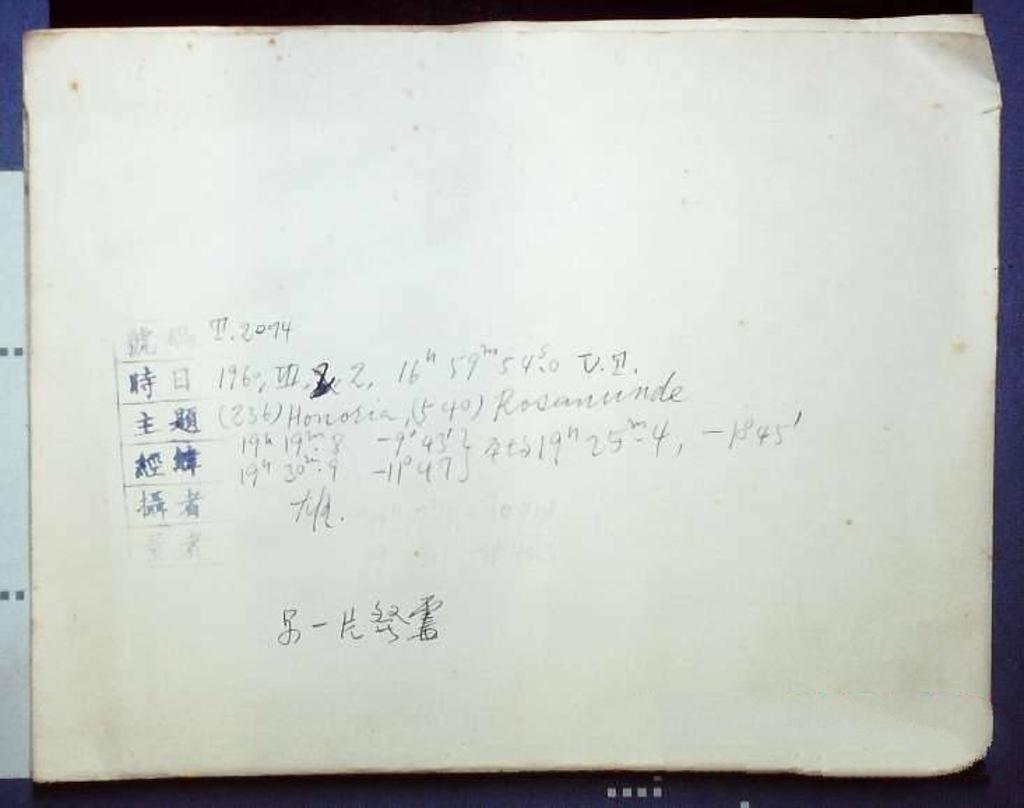 號碼 T.2074
時日 1960, VII, 2, 16ʰ 59ᵐ 54ˢ.0 U.T.
主題 (236) Honoria, (540) Rosamunde
經緯 19ʰ 19ᵐ.8 -9°43' }
19ʰ 30ᵐ.9 -11°47 } 19ʰ 25ᵐ.4, -1°45'
攝者
量者
另一片發霉